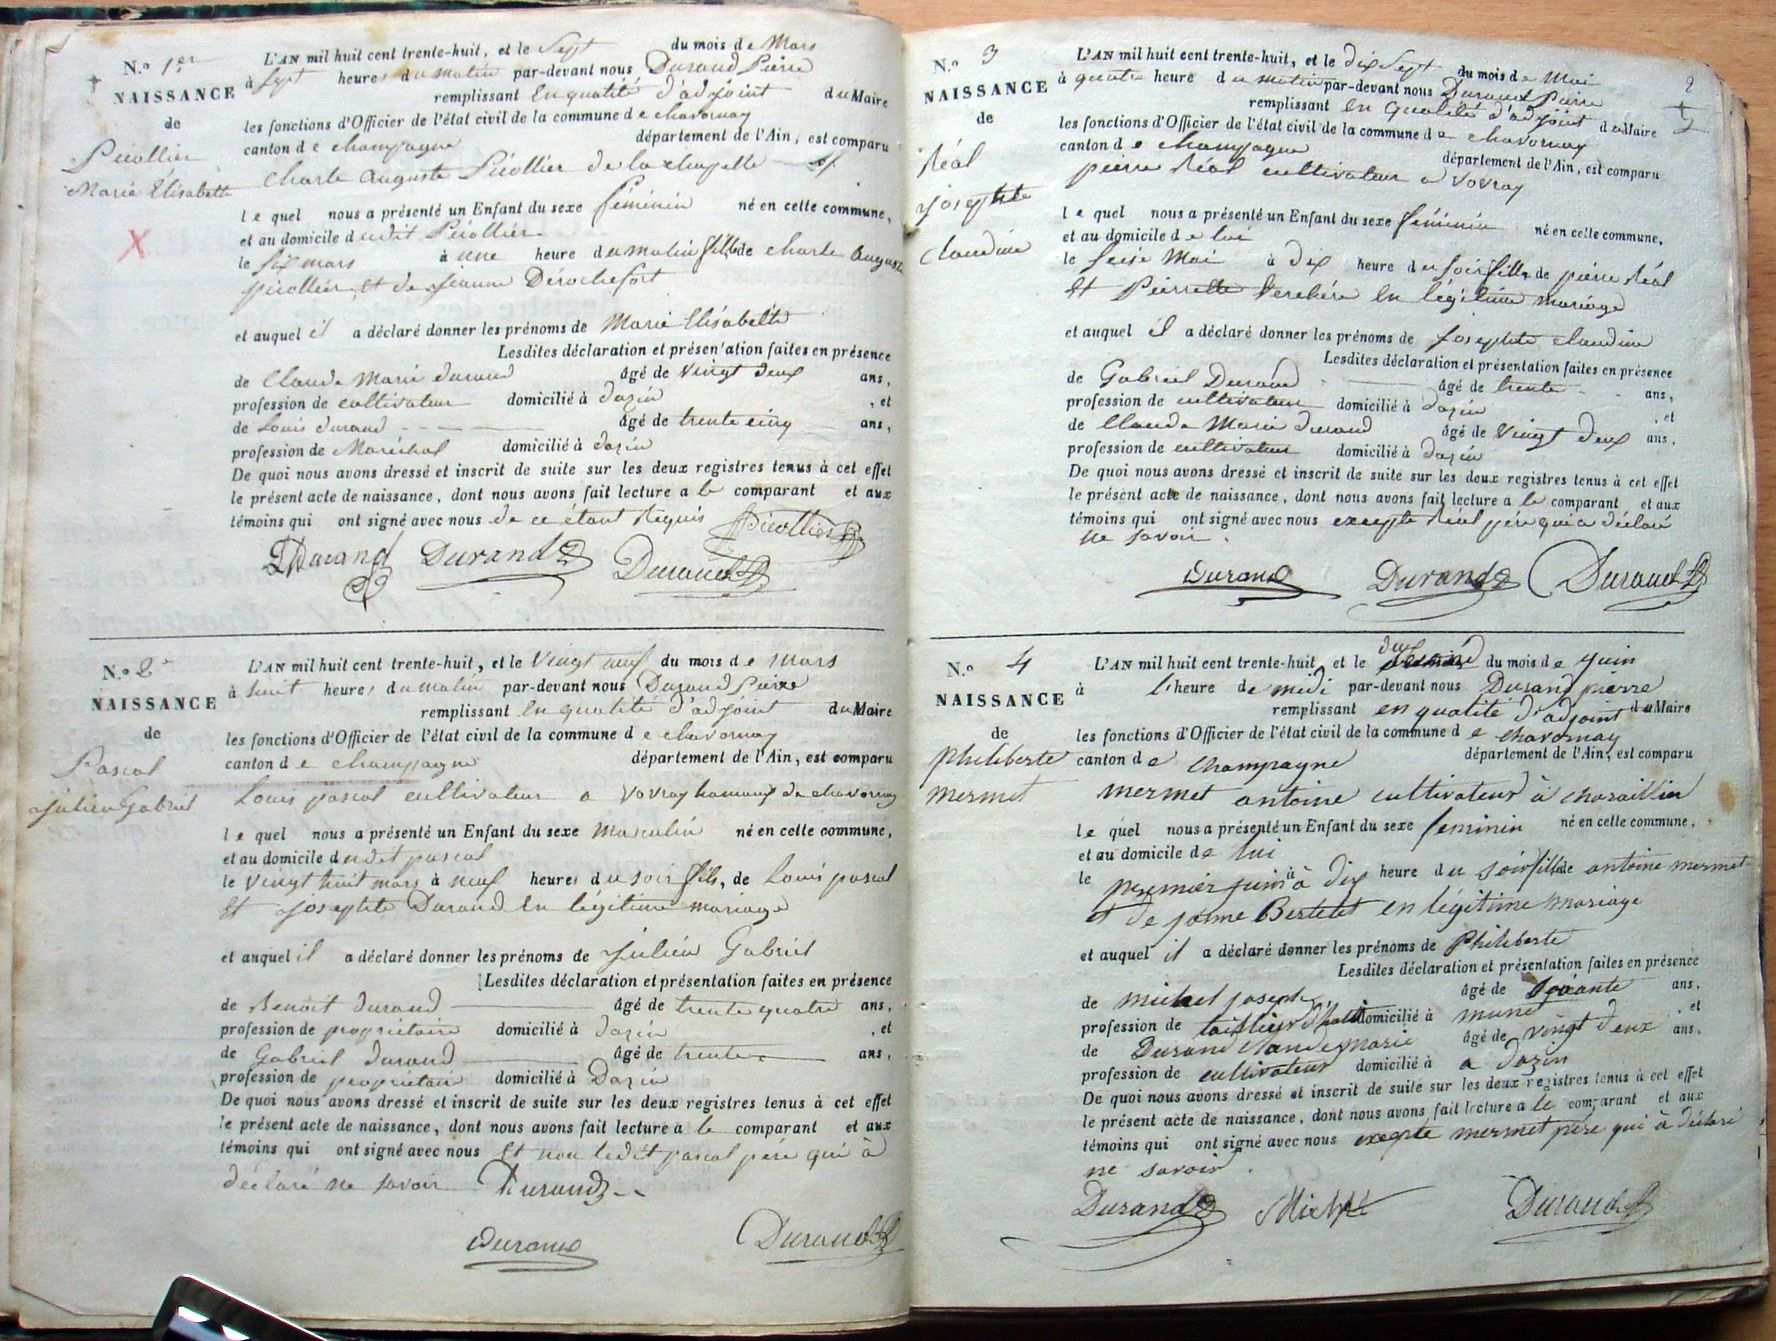 N.o 1er
NAISSANCE
de
Picollier
Marie Élisabeth
X
L'AN mil huit cent trente-huit, et le Sept du mois de Mars
à Sept heures du matin par-devant nous Durand Pierre
remplissant en qualité d'adjoint du Maire
les fonctions d'Officier de l'état civil de la commune de chavornay
canton de champagne département de l'Ain, est comparu
Charle Auguste Picollier de la chapelle
lequel nous a présenté un Enfant du sexe féminin né en cette commune,
et au domicile dudit Picollier
le six mars à une heure du matin fille de Charle Auguste
picollier et de Jeanne Dérochefort
et auquel il a déclaré donner les prénoms de Marie Elisabeth
Lesdites déclaration et présentation faites en présence
de Claude Marie durand âgé de Vingt deux ans,
profession de cultivateur domicilié à dazin , et
de Louis durand âgé de trente cinq ans,
profession de Maréchal domicilié à dazin
De quoi nous avons dressé et inscrit de suite sur les deux registres tenus à cet effet
le présent acte de naissance, dont nous avons fait lecture a le comparant et aux
témoins qui ont signé avec nous de ce étant Requis Picollier
Durand Durand Durand
N.o 2
NAISSANCE
de
Pascal
Julien Gabriel
L'AN mil huit cent trente-huit, et le Vingt neuf du mois de mars
à huit heures du matin par-devant nous Durand Pierre
remplissant en qualité d'adjoint du Maire
les fonctions d'Officier de l'état civil de la commune de chavornay
canton de champagne département de l'Ain, est comparu
Louis pascal cultivateur a Vovray hameau de chavornay
lequel nous a présenté un Enfant du sexe masculin né en cette commune,
et au domicile dudit pascal
le Vingt huit mars à neuf heures du soir fils, de Louis pascal
et josephte Durand en légitime mariage
et auquel il a déclaré donner les prénoms de Julien Gabriel
Lesdites déclaration et présentation faites en présence
de Benoit durand âgé de trente quatre ans,
profession de propriétaire domicilié à dazin , et
de Gabriel durand âgé de trente ans,
profession de propriétaire domicilié à Dazin
De quoi nous avons dressé et inscrit de suite sur les deux registres tenus à cet effet
le présent acte de naissance, dont nous avons fait lecture à le comparant et aux
témoins qui ont signé avec nous Et non ledit pascal père qui à
déclaré ne savoir Durand
Durand Durand
2
N.o 3
NAISSANCE
de
Réal
Josephte
Claudine
L'AN mil huit cent trente-huit, et le dix Sept du mois de Mai
à quatre heure du matin par-devant nous Durand Pierre
remplissant en qualité d'adjoint du Maire
les fonctions d'Officier de l'état civil de la commune de chavornay
canton de champagne département de l'Ain, est comparu
pierre Réal cultivateur a Vovray
lequel nous a présenté un Enfant du sexe féminin né en cette commune,
et au domicile de lui
le seise Mai à dix heure du soir fille de pierre Réal
Et Pierrette en légitime mariage
et auquel il a déclaré donner les prénoms de Josephte claudine
Lesdites déclaration et présentation faites en présence
de Gabriel Durand âgé de trente ans,
profession de cultivateur domicilié à dazin , et
de Claude Marie durand âgé de Vingt deux ans,
profession de cultivateur domicilié à dazin
De quoi nous avons dressé et inscrit de suite sur les deux registres tenus à cet effet
le présent acte de naissance, dont nous avons fait lecture a le comparant et aux
témoins qui ont signé avec nous excepté Réal père qui a déclaré
ne savoir.
Durand Durand Durand
N.o 4
NAISSANCE
de
Philiberte
mermet
L'AN mil huit cent trente-huit et le deux du mois de juin
à l'heure de midi par-devant nous Durand pierre
remplissant en qualité d'adjoint du Maire
les fonctions d'Officier de l'état civil de la commune de chavornay
canton de champagne département de l'Ain, est comparu
mermet antoine cultivateur à charaillin
lequel nous a présenté un Enfant du sexe feminin né en cette commune,
et au domicile de lui
le premier juin à dix heure du soir fille de antoine mermet
et de jeanne Bertelet en légitime mariage
et auquel il a déclaré donner les prénoms de Philiberte
Lesdites déclaration et présentation faites en présence
de michel joseph âgé de soixante ans,
profession de tailleur d'habit domicilié à , et
de Durand Claude marie âgé de vingt deux ans,
profession de cultivateur domicilié à a Dazin
De quoi nous avons dressé et inscrit de suite sur les deux registres tenus à cet effet
le présent acte de naissance, dont nous avons fait lecture a le comparant et aux
témoins qui ont signé avec nous excepté mermet père qui à déclaré
ne savoir.
Durand Michel Durand